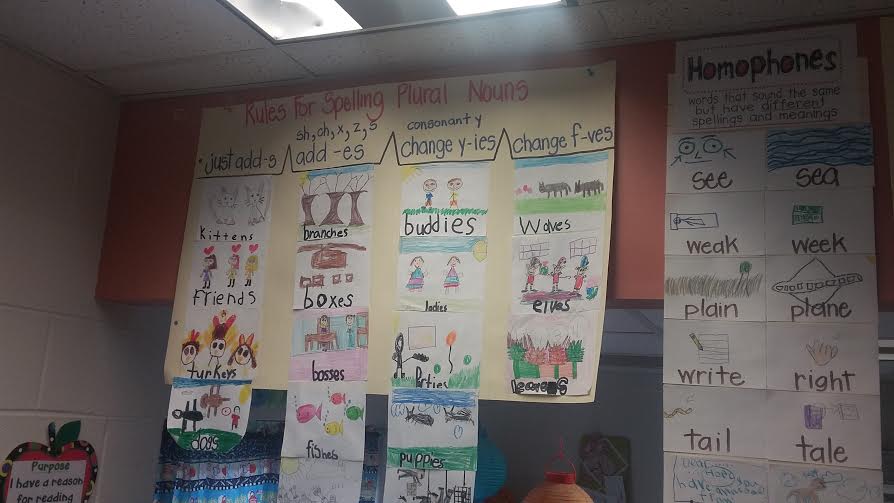 Rules For Spelling Plural Nouns
just add-s
sh, ch, x, z, s
add -es
consonant y
change y-ies
change f-ves
Kittens
friends
turkeys
dogs
branches
boxes
bosses
fishes
buddies
ladies
Parties
puppies
Wolves
elves
Homophones
words that sound the same
but have different
spellings and meanings
see
sea
weak
week
plain
plane
write
right
tail
tale
Purpose
I have a reason
for reading